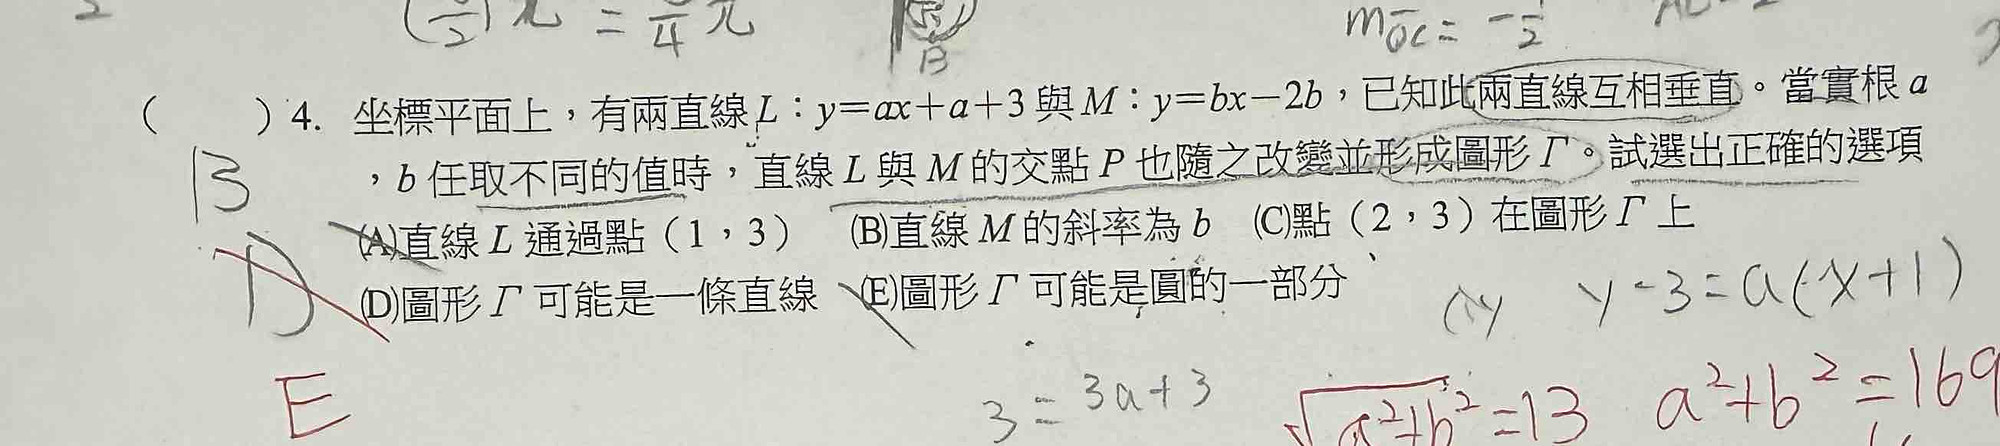 2
(3/2)π = 3/4 π
B
m QC = -1/2
(　　) 4. 坐標平面上，有兩直線 L：y＝ax＋a＋3 與 M：y＝bx－2b，已知此兩直線互相垂直。當實根 a
，b 任取不同的值時，直線 L 與 M 的交點 P 也隨之改變並形成圖形 Γ。試選出正確的選項
B
(A)直線 L 通過點（1，3）　(B)直線 M 的斜率為 b　(C)點（2，3）在圖形 Γ 上
D
(D)圖形 Γ 可能是一條直線　(E)圖形 Γ 可能是圓的一部分
y-3=a(x+1)
E
3=3a+3
√a²+b²=13
a²+b²=169